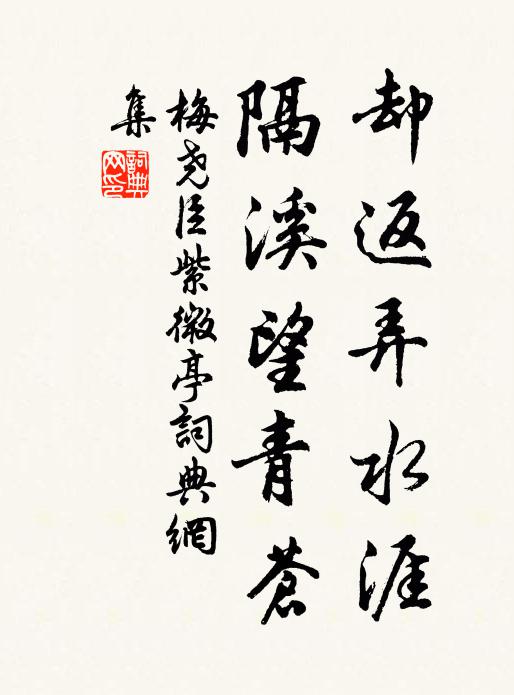 却返弄水涯
隔溪望青蒼
梅尧臣紫微亭詞典網
集
詞典
网印